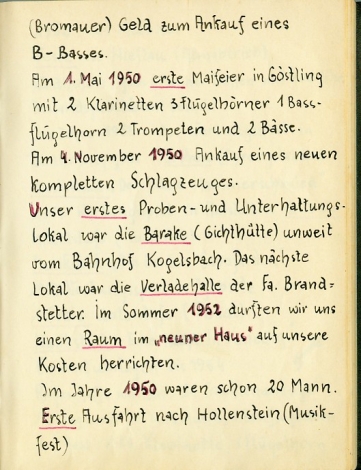 (Bromauer) Geld zum Ankauf eines
B-Basses.
Am 1. Mai 1950 erste Maifeier in Göstling
mit 2 Klarinetten 3 Flügelhörner 1 Bass-
flügelhorn 2 Trompeten und 2 Bässe.
Am 4. November 1950 Ankauf eines neuen
kompletten Schlagzeuges.
Unser erstes Proben- und Unterhaltungs-
lokal war die Barake (Gichthütte) unweit
vom Bahnhof Kogelsbach. Das nächste
Lokal war die Verladehalle der Fa. Brand=
stetter. Im Sommer 1952 durften wir uns
einen Raum im „neuner Haus" auf unsere
Kosten herrichten.
Im Jahre 1950 waren schon 20 Mann.
Erste Ausfahrt nach Hollenstein (Musik-
fest)